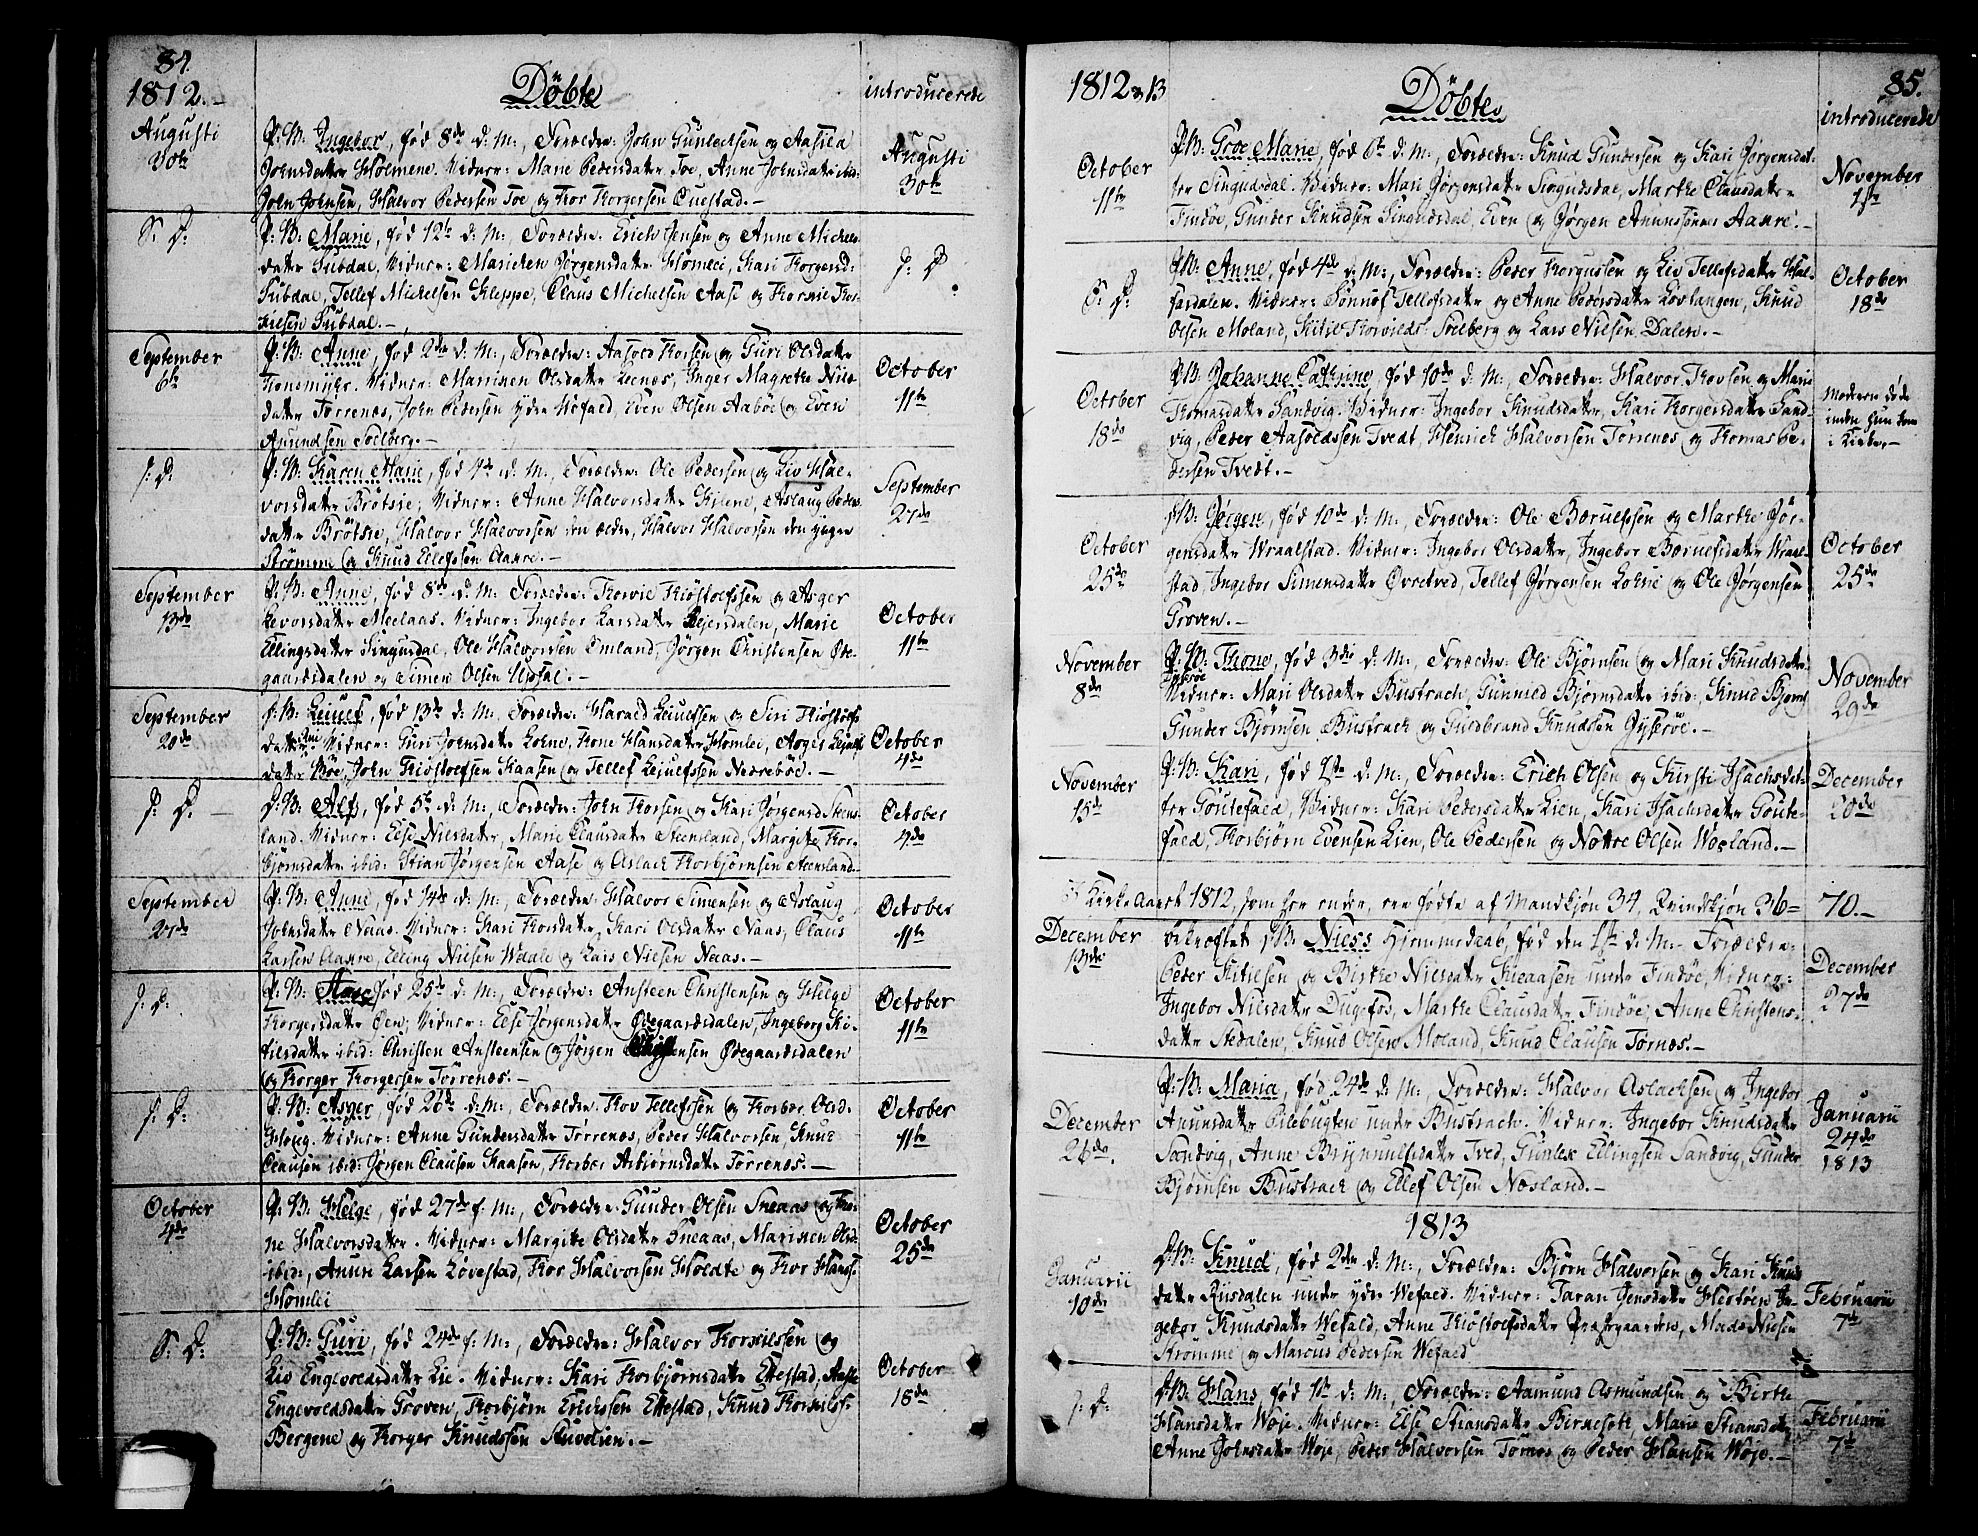 84.
1812.
Döbte
introducerede
Augusti
30te
P: B: Ingebor, fød 8de d: M:, Forældre: John Gunlechsen og Aasild
Johnsdatter Holmene. Vidner: Marie Pedersdatter Toe, Anne Johnsdatter ibid:
John Johnsen, Halvor Pedersen Toe og Thor Thorgersen
Augusti
30te
S: D:
P: B: Marie, fød 12te d: M:, Forældre: Erich Jensen og Anne Michels-
datter Subdal, Vidner: Marichen Jørgensdatter Homlei, Kari Thorgersd:
Subdal, Tellef Michelsen Kleppe, Claus Michelsen Aase og
Subdal.
S: D:
September
6te
P: B: Anne, fød 2den d: M:, Forældre: Aasold Thorsen og Guri Olsdatter
Vidner: Marichen Olsdatter Leenæs, Inger Magrethe Niels-
datter Törrenæs, John Pedersen ydre Wefald, Even Olsen Aaböe og Even
Anundsen Solberg.
October
11te
S: D:
P: B: Karen Marie, fød 4de d: M:, Forældre: Ole Pedersen og Liv Hal-
vorsdatter Brötsie, Vidner: Anne Halvorsdatter Kilene, Aslaug Peders-
datter Brötsie, Halvor Halvorsen den ældre, Halvor Halvorsen den yngre
Strømme og Knud Ellefsen Aaare.
September
27de
September
13de
P: B: Anne, fød 8de d: M:, Forældre: Thorvil Kiöstolfsen og Asger
Levorsdatter Meelaas. Vidner: Ingebor Larsdatter Eijersdalen, Marie
Ellingsdatter Singusdal, Ole Halvorsen Omland, Jörgen Christensen Öde-
gaardsdalen og Simen Olsen Upsal.
October
11te
September
20de
P: B: Leiulf, fød 13de d: M:, Forældre: Harald Leiulfsen og Siri Kiöstolfs
datter Vidner: Guri Johnsdatter Lohne, Thone Hansdatter Homlei, Asger Lejulfs
datter Böe, John Kiöstolfsen Kaasen og Tellef Lejulfsen Næreböe.
October
4de
S: D:
P: B: Alf, fød 5te d: M:, Forældre: John Thorsen og Kari Jörgensd: Steens-
land. Vidner: Else Nielsdatter, Marie Clausdatter Steensland, Margithe Thor-
bjørnsdatter ibid: Stian Jørgensen Aase og Aslach Thorbjørnsen Steensland.
October
4de
September
27de
P: B: Anne, fød 14de d: M:, Forældre: Halvor Simensen og Aslaug
Johnsdatter Naas. Vidner: Kari Thorsdatter, Kari Olsdatter Naas, Claus
Larsen Aaare, Elling Nielsen Wdale og Lars Nielsen Naas.
October
11te
S: D:
P: B: Aase, fød 25de d: M:, Forældre: Ansteen Christensen og Helge
Thorgersdatter Öen, Vidner: Else Jørgensdatter Ödegaardsdalen, Ingeborg Ki-
tilsdatter ibid: Christen Ansteensen og Jörgen Christensen Ödegaardsdalen
og Thorger Thorgersen Törrenæs.
October
11te
S: D:
P: B: Asger, fød 26de d: M:, Forældre: Thov Tellefsen og Thorbor Olsd:
Vidner: Anne Gundersdatter Törrenæs, Peder Halvorsen, Knud
Clausen ibid: Jörgen Clausen Kaasen, Thorbor Asbiørnsdatter Törrenæs.
October
11te
October
4de
P: B: Helge, fød 27de f: M:, Forældre: Gunder Olsen Sneaas og Tho-
ne Halvorsdatter. Vidner: Margithe Olsdatter Sneaas, Marichen Olsd:
ibid:, Anun Larsen Lövestad, Thor Halvorsen Holdte og Thor Hans:
Homlei
October
25de
S: D:
P: B: Guri, fød 24de f: M:, Forældre: Halvor Thorkilssen og
Liv Engevoldsdatter Lie. Vidner: Kari Thorbjørnsdatter Ettestad, Aase
Engevoldsdatter Groven, Thorbjörn Erichsen Ettestad, Knud Thorkilss:
Bergene og Thorger Knudssen Stuvelien.
October
18de
1812 og 13
Döbte
85.
introducerede
October
11te
P: B: Groe Marie, fød 6te d: M:, Forældre: Knud Gundersen og Kari Jørgensdat-
ter Singusdal. Vidner: Mari Jørgensdatter Singusdal, Marthe Clausdatter
Findöe, Gunder Knudsen Singusdal, Even og Jørgen Anunssønner Aaare.
November
1ste
S: D:
P: B: Anne, fød 4de d: M:, Forældre: Peder Thorgusen og Liv Tellefsdatter Hal-
fardalen. Vidner: Sönnof Tellefsdatter og Anne Pedersdatter Lovlangen, Knud
Olsen Moland, Kitil Thorvilds: Solberg og Lars Nielsen Dalen.
October
18de
October
18de
P: B: Johanne Cathrine, fød 10de d: M:, Forældre: Halvor Thovsen og Mari
Thomasdatter Sandvig. Vidner: Ingebor Knudsdatter, Kari Thorgersdatter Sand-
vig, Peder Aasoldssen Tvedt, Henrich Halvorsen Törrenæs og Thomas Pe-
dersen Tvedt.
Moderen døde
inden hun kom
i Kirke.
October
25de
P: B: Jörgen, fød 10de d: M:, Forældre: Ole Børulfsen og Marthe Jör-
gensdatter Wraalstad. Vidner: Ingebor Olsdatter, Ingebor Børulfsdatter Wraal-
stad, Ingebor Simensdatter Övretved, Tellef Jörgensen Lohne og Ole Jörgensen
Groven.
October
25de
November
8de
P: B: Thone, fød 3die d: M:, Forældre: Ole Bjørnsen og Mari Knudsdatter
Gyseröe
Vidner: Mari Olsdatter Bustrach, Gunnild Bjørnsdatter ibid:, Knud Bjørns:
Gunder Bjørnsen Bustrach og Guldbrand Knudsen Gyseröe.
November
29de
November
15de
P: B: Kari, fød 1ste d: M:, Forældre: Erich Olsen og Kirsti Isachsdat-
ter Goutefald, Vidner: Kari Pedersdatter Lien, Kari Isachsdatter Goute-
fald, Thorbiörn Evensen Lien, Ole Pedersen og Nottoe Olsen Wæsland.
December
20de
I Kirke Aaret 1812, som her ender, ere fødte af Mandkjøn 34, Qvindekjøn 36 = 70.
December
13de
bekræftet P: B: Niels Hjemmedaab, fød den 1ste d: M:, Forældre:
Peder Kitilsen og Birthe Nielsdatter Kleaasen under Findöe, Vidner:
Ingebor Nielsdatter Dugefos, Marthe Clausdatter Findöe, Anne Christens-
datter Nedalen, Knud Olsen Moland, Knud Clausen Tørnes.
December
27de
December
26de
P: B: Maria, fød 24de d: M:, Forældre: Halvor Aslachsen og Ingebor
Anunsdatter Pilebugten under Bustrach. Vidner: Ingebor Knudsdatter
Sandvig, Anne Brynnulfsdatter Tved, Gunlech Ellingsen Sandvig, Gunder
Bjørnsen Bustrach og Ellef Olsen Næsland.
Januarii
24de
1813
1813
Januarii
10de
P: B: Knud, fød 2den d: M:, Forældre: Bjørn Halvorsen og Kari Knuds
datter Riisdalen under ydre Wefald. Vidner: Taran Jensdatter Hestöen In-
gebor Knudsdatter Wefald, Anne Kiöstolfsdatter Præstgaarden, Mads Nielsen
Kromme og Marcus Pedersen Wefald
Februarii
7de
S: D:
P: B: Hans, fød 1ste d: M:, Forældre: Aamund Asmundsen og Birthe
Hansdatter Woje. Vidner: Else Stiansdatter Marie Stiansdatter
Anne Johnsdatter Woje, Peder Halvorsen Tornes og Peder Hansen Woje.
Februarii
7de